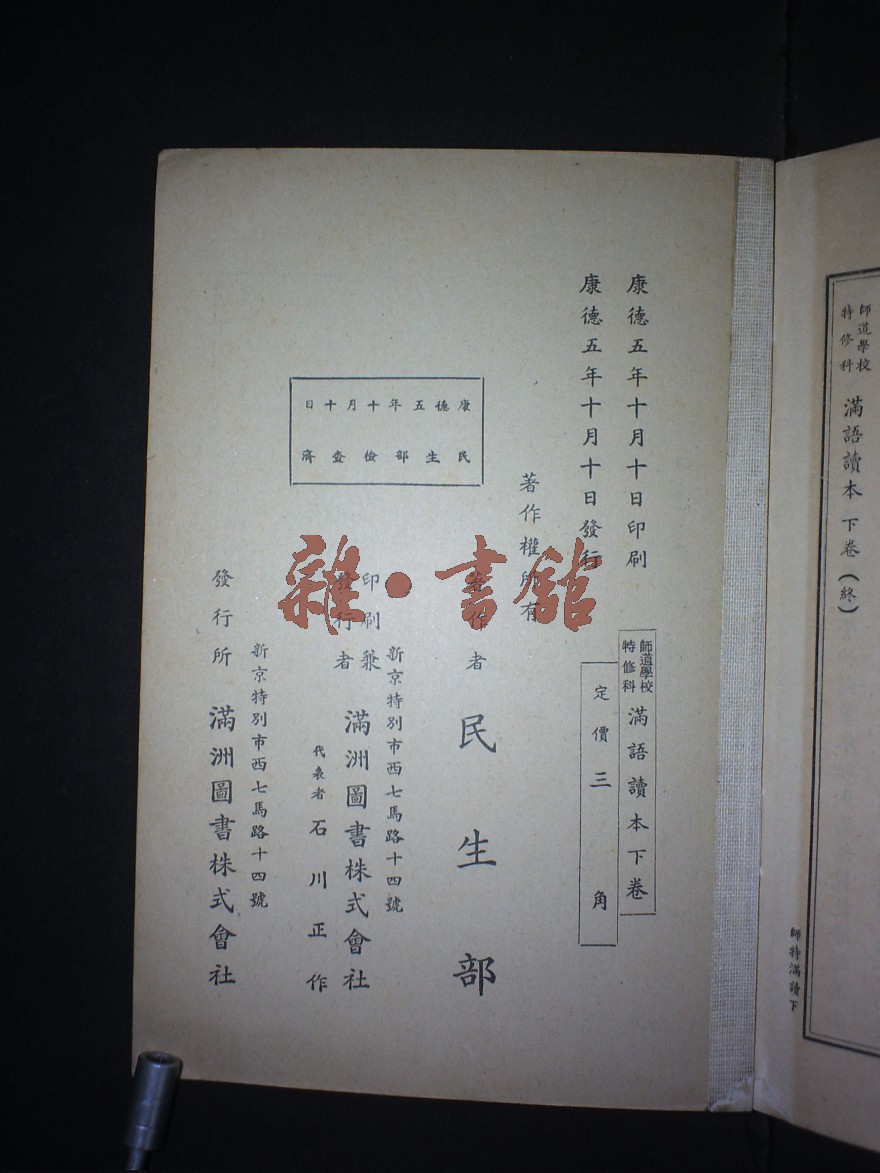 師道學校
特修科
滿語讀本 下卷(終)
師特滿讀下
康德五年十月十日印刷
康德五年十月十日發行
師道學校
特修科
滿語讀本下卷
定價三角
著作權所有
著作者 民生部
新京特別市西七馬路十四號
印刷兼
發行者
滿洲圖書株式會社
代表者 石川正作
康德五年十月十日
民生部檢查濟
新京特別市西七馬路十四號
發行所 滿洲圖書株式會社
雜·書館